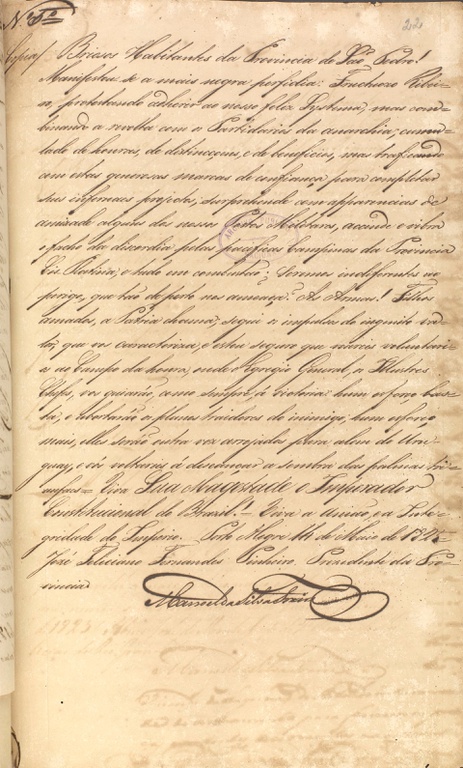 Nº 5º
22
(Copia) Briosos Habitantes da Provincia de São Pedro!
Manifestou-se a mais negra perfidia: Fructuoso Ribei-
ro, protestando adherir ao nosso feliz Systema, mas com-
binando a revolta com os Partidarios da anarchia; cumu-
lado de honras, de distincçoens, e de beneficios, mas traficando
com estas generosas marcas de confiança para completar
seus infernaes projectos, surprehende com apparencias de
amizade alguns dos nossos Postos Militares, accende e vibra
o facho da discordia pelas pacificas Campinas da Provincia
Cis Platina; e tudo em combustão; Seremos indiferentes ao
perigo, que tão de perto nos ameaça? Às Armas! Filhos
amados, a Patria chama; segui o impulso do inquito va-
lor, que vos caracteriza, e estou seguro que correis voluntari-
os ao Campo da honra, onde o Egregio General, e Illustres
Chefes, vos guiarão, como sempre, á victoria: hum esforço bas-
ta, e abortarão os planos traidores do inimigo, hum esforço
mais, elles serão outra vez arrojados para alem do Uru-
guay, e vós voltareis a descançar á sombra das palmas tri-
unfaes = Viva Sua Magestade o Imperador
Constitucional do Brasil! = Viva a União, e a Inte-
gridade do Imperio. Porto Alegre 14 de Maio de 1825 =
José Feliciano Fernandes Pinheiro, Presidente da Pro-
vincia
Manoel da Silva